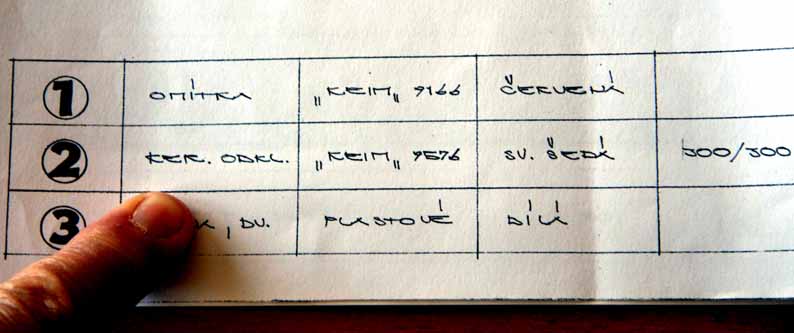 1 OMÍTKA „KEIM„ 9166 ČERVENÁ
2 KER. ODKL. „KEIM„ 9576 SV. ŠEDÁ 300/300
3 , DV. PLASTOVÉ BÍLÁ